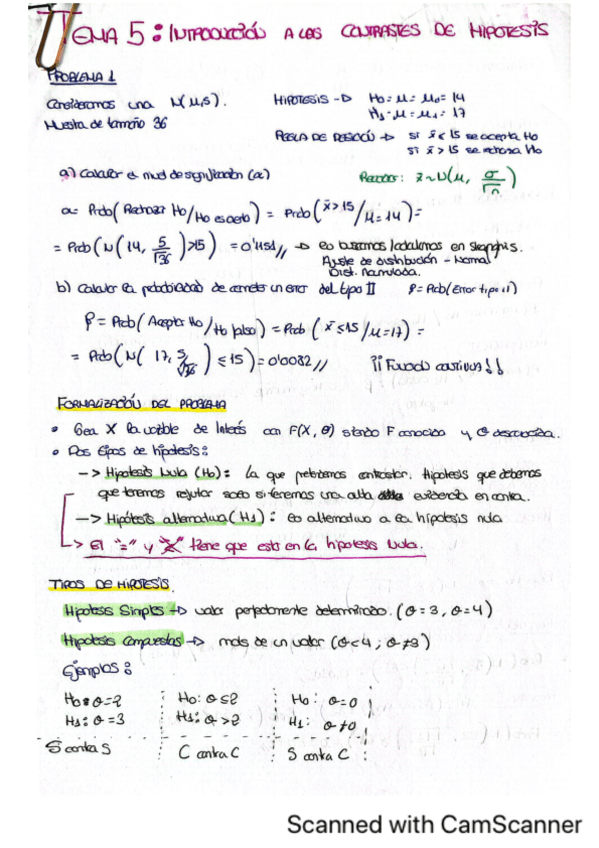 TEMA 5: INTRODUCCIÓN A LOS CONTRASTES DE HIPOTESIS
PROBLEMA 1
Consideramos una N(μ,5). HIPOTESIS -> H0 = μ = μ0 = 14
Muestra de tamaño 36 H1 = μ = μ1 = 17
REGLA DE DECISIÓN -> si x̄ ≤ 15 se acepta H0
si x̄ > 15 se rechaza H0
a) Calcular el nivel de significación (α) Recordar: x̄ ~ N(μ, σ/√n)
α = Prob(Rechazar H0/H0 es cierto) = Prob(x̄ > 15/μ = 14) =
= Prob(N(14, 5/√36) > 15) = 0'1151// -> lo buscamos/calculamos en stargraphis.
Ajuste de distribución - Normal
Dist. normal
b) Calcular la probabilidad de cometer un error del tipo II β = Prob(Error tipo II)
β = Prob(Aceptar H0/H0 falso) = Prob(x̄ ≤ 15/μ = 17) =
= Prob(N(17, 5/√36) ≤ 15) = 0'0082// ¡¡ Fijando continuos !!
FORMALIZACIÓN DEL PROBLEMA
• Sea X la variable de interés con F(X, θ) siendo F conocida y θ desconocida.
• Dos tipos de hipotesis:
-> Hipotesis Nula (H0): La que pretendemos contrastar. Hipotesis que debemos
que tenemos rejutar solo si tenemos una alta evidencia en contra.
-> Hipótesis alternativa (H1): es alternativa a la hipotesis nula
-> El "=" y "≤" tiene que esta en la hipotesis Nula.
TIPOS DE HIPOTESIS.
Hipotesis Simples -> valor perfectamente determinado. (θ = 3, θ = 4)
Hipotesis Compuestas -> más de un valor (θ < 4, θ ≠ 3)
Ejemplos:
H0: θ = 2 H0: θ ≤ 2 H0: θ = 0
H1: θ = 3 H1: θ > 2 H1: θ ≠ 0
S contra S C contra C S contra C
Scanned with CamScanner